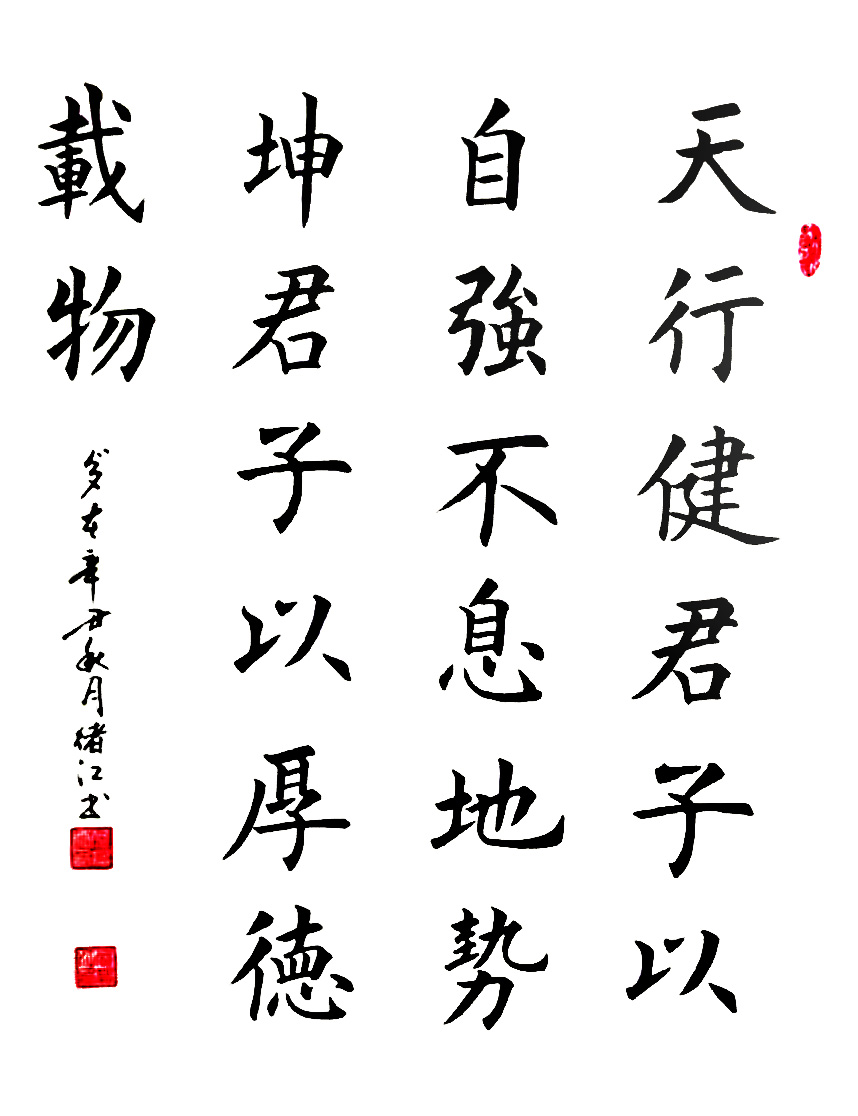 天行健君子以
自強不息地勢
坤君子以厚德
載物
岁在辛丑秋月绪江书